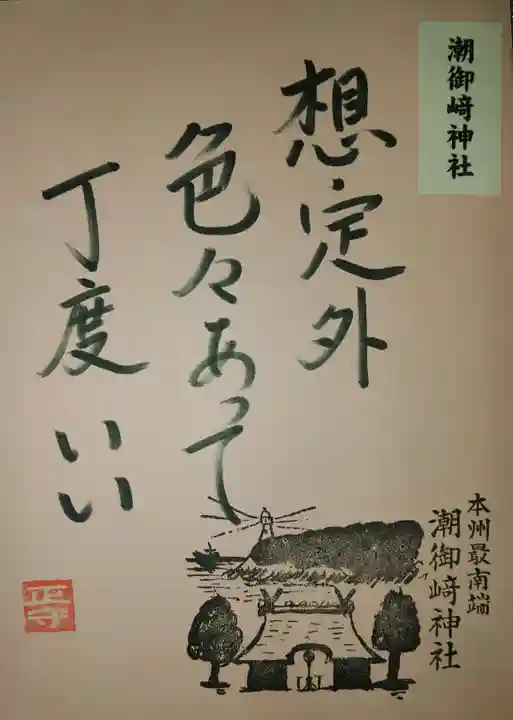 潮御﨑神社
想定外
色々あって
丁度いい
本州最南端
潮御﨑神社